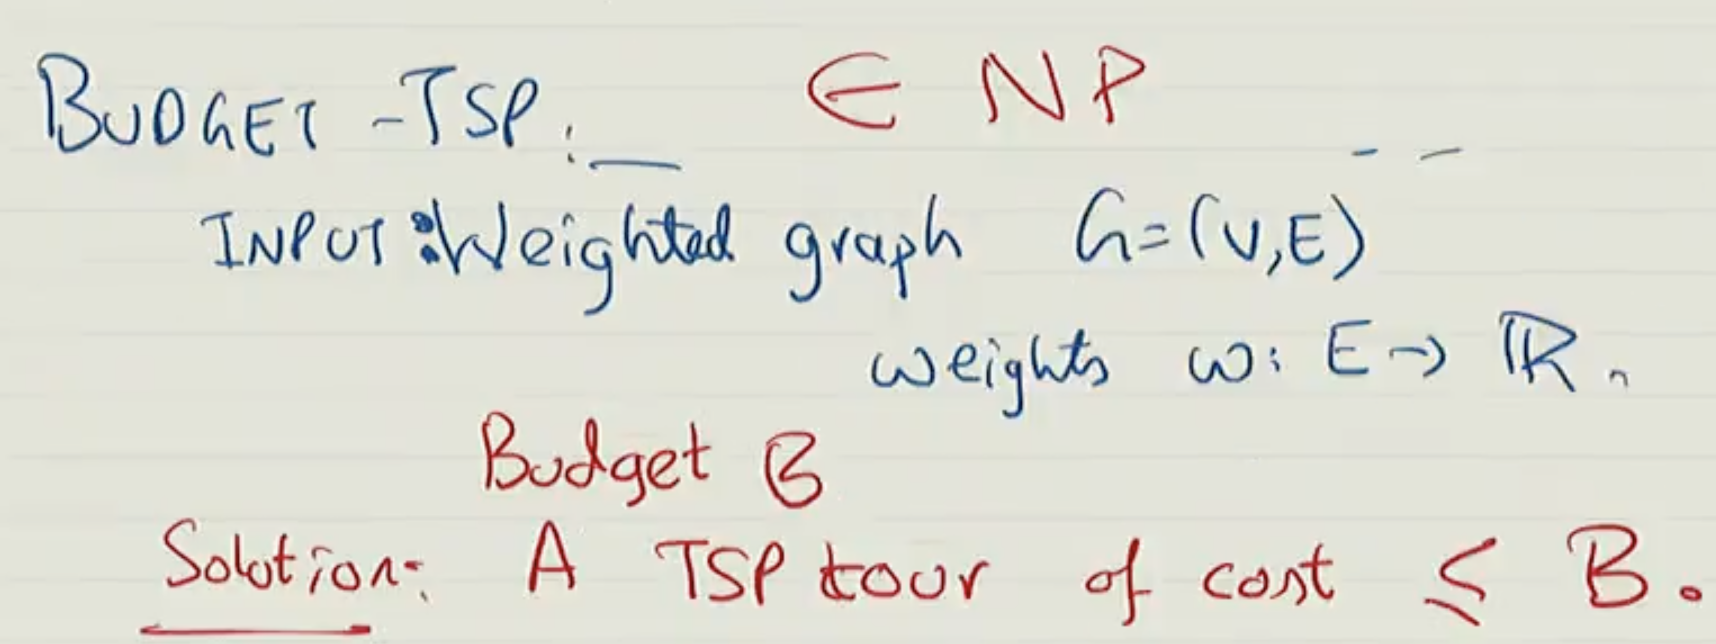 BUDGET-TSP: ∈ NP
INPUT: Weighted graph G=(V,E)
weights w: E→ ℝ.
Budget B
Solution: A TSP tour of cost ≤ B.